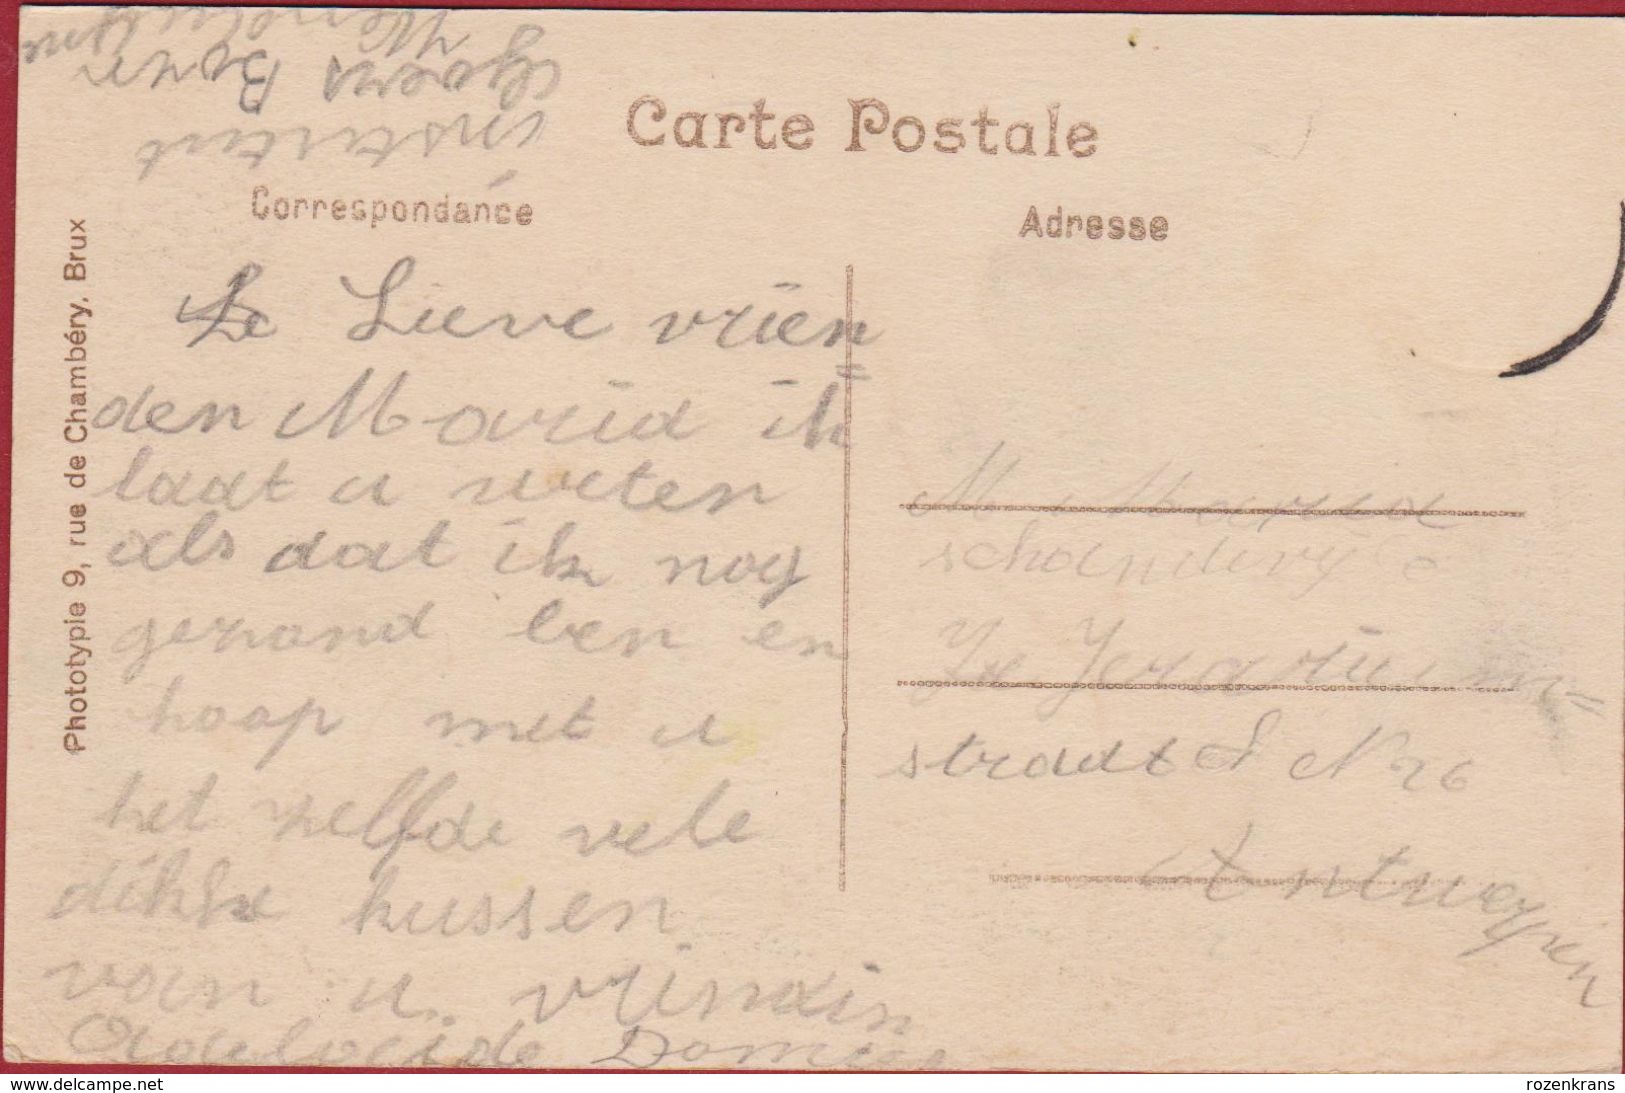 Carte Postale
Correspondance
Adresse
Phototypie 9, rue de Chambéry, Brux
institut
Boven
Le Lieve vrien=
den Maria ik
laat u weten
als dat ik nog
gezond ben en
hoop met u
het zelfde vele
dikke kussen
van u vrindin
Adeloeide
M Maria
straat N 26
Antwerpen
www.delcampe.net
rozenkrans